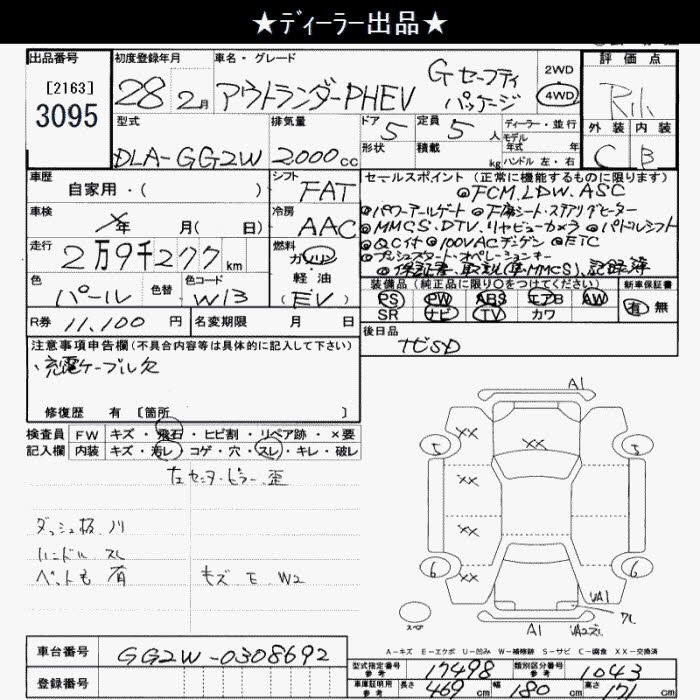 ★ディーラー出品★
出品番号 初度登録年月 車名・グレード 評価点
[2163]
3095
28年 2月 アウトランダーPHEV Gセーフティパッケージ 2WD 4WD
型式 排気量 ドア 定員 ディーラー・並行 外装 内装
DLA-GG2W 2000cc 5 5人 モデル年式 年 C B
形状 積載 kg ハンドル 左・右
車歴 自家用・( ) シフト FAT
セールスポイント(正常に機能するものに限ります)
◎FCM.LDW.ASC
◎パワーテールゲート ◎F席シート・ステアリングヒーター
◎MMCS.DTV.リヤビューカメラ ◎パドルシフト
◎QC付 ◎100VAC ◎ETC
◎プッシュスタート・オペレーションキー
◎保証書、取説(車・MMCS)、記録簿
車検 年 月( 日) 冷房 AAC
走行 2万9千277km 燃料 ガソリン
軽油
(EV)
色 パール 色替 色コード W13
装備品(純正品に限り○をつけてください) 新車保証書
PS PW ABS エアB AW 有 無
SR ナビ TV カワ
R券 11,100円 名変期限 月 日
後日品
ナビSD
注意事項申告欄(不具合内容等は具体的に記入して下さい)
・充電ケーブル欠
修復歴 有 [箇所 ]
検査員 FW キズ・飛石・ヒビ割・リペア跡・×要
記入欄 内装 キズ・汚レ・コゲ・穴・スレ・キレ・破レ
左センターピラー歪
ダッシュ板ノリ
ハンドル スレ
ペット毛 有 キズ E W2
A1
5 XX XX 5
XX
XX
6 XX 6
UA1
スペア A1 UA2スレ
A-キズ E-エクボ U-凹み W-補修跡 S-サビ C-腐食 XX-交換済
車台番号 GG2W-0308692
登録番号
型式指定番号 参考 17498 類別区分番号 参考 1043
車庫証明用 参考 長さ 469cm 幅 180cm 高さ 171cm